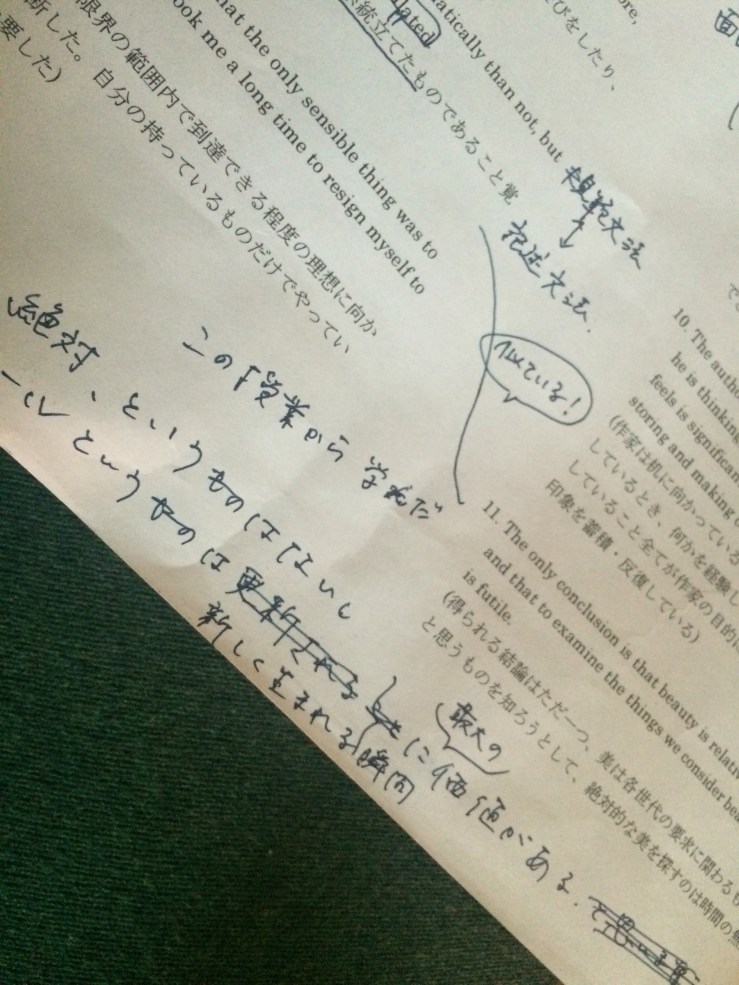 atically than not, but
統立てたものであること覚
hat the only sensible thing was to
ook me a long time to resign myself to
限界の範囲内で到達できる程度の理想に向か
断した。 自分の持っているものだけでやってい
要した)
規範文法
↓
記述文法.
似ている!
この授業から学んだ
絶対、というものはないし
ルールというものは更新される
新しく生まれる瞬間
に最大の価値がある.
と思います
10. The autho
he is thinking
feels is significan
storing and making
(作家は机に向かっている
しているとき、何かを経験し
していること全てが作家の目的に
印象を蓄積・反復している)
11. The only conclusion is that beauty is relativ
and that to examine the things we consider bea
is futile.
(得られる結論はただ一つ、美は各世代の要求に関わるも
と思うものを知ろうとして、絶対的な美を探すのは時間の無